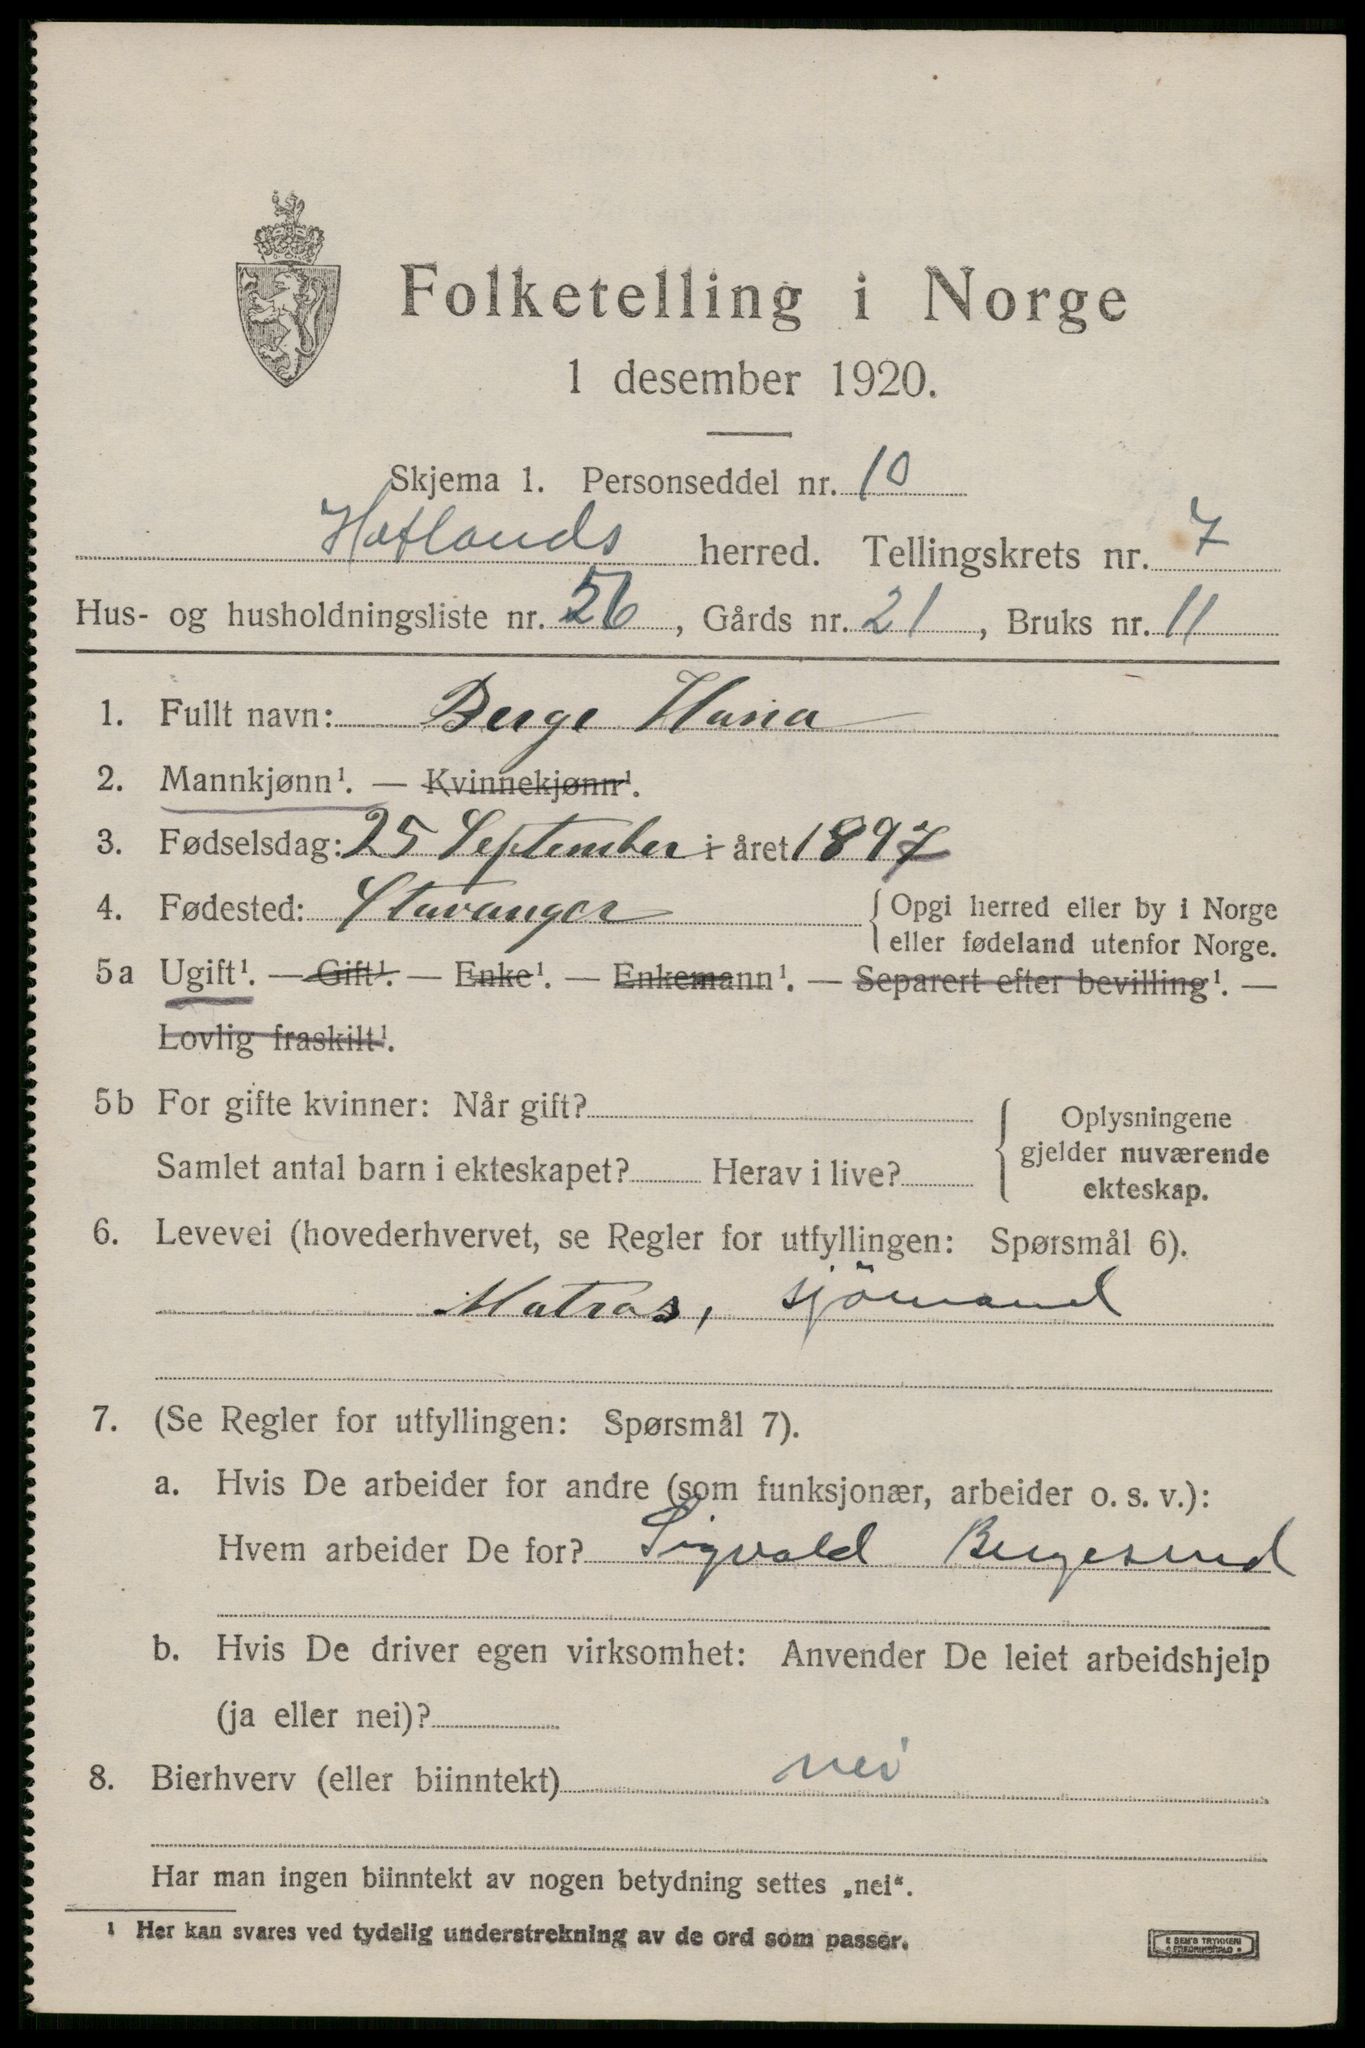 Folketelling i Norge
1 desember 1920.
Skjema 1. Personseddel nr. 10
Hetlands herred. Tellingskrets nr. 7
Hus- og husholdningsliste nr. 56, Gårds nr. 21, Bruks nr. 11
1. Fullt navn: Berge Hana
2. Mannkjønn¹. — Kvinnekjønn¹.
3. Fødselsdag: 25 September i året 1897
4. Fødested: Stavanger {Opgi herred eller by i Norge
eller fødeland utenfor Norge.
5a Ugift¹. — Gift¹. — Enke¹. — Enkemann¹. — Separert efter bevilling¹. —
Lovlig fraskilt¹.
5b For gifte kvinner: Når gift? {Oplysningene
gjelder nuværende
Samlet antal barn i ekteskapet? Herav i live? ekteskap.
6. Levevei (hovederhvervet, se Regler for utfyllingen: Spørsmål 6).
Matros, sjömand
7. (Se Regler for utfyllingen: Spørsmål 7).
a. Hvis De arbeider for andre (som funksjonær, arbeider o. s. v.):
Hvem arbeider De for? Sigvald Bergesend
b. Hvis De driver egen virksomhet: Anvender De leiet arbeidshjelp
(ja eller nei)?
8. Bierhverv (eller biinntekt) nei
Har man ingen biinntekt av nogen betydning settes „nei“.
¹ Her kan svares ved tydelig understrekning av de ord som passer.
E SEM'S TRYKKERI
FREDRIKSHALD